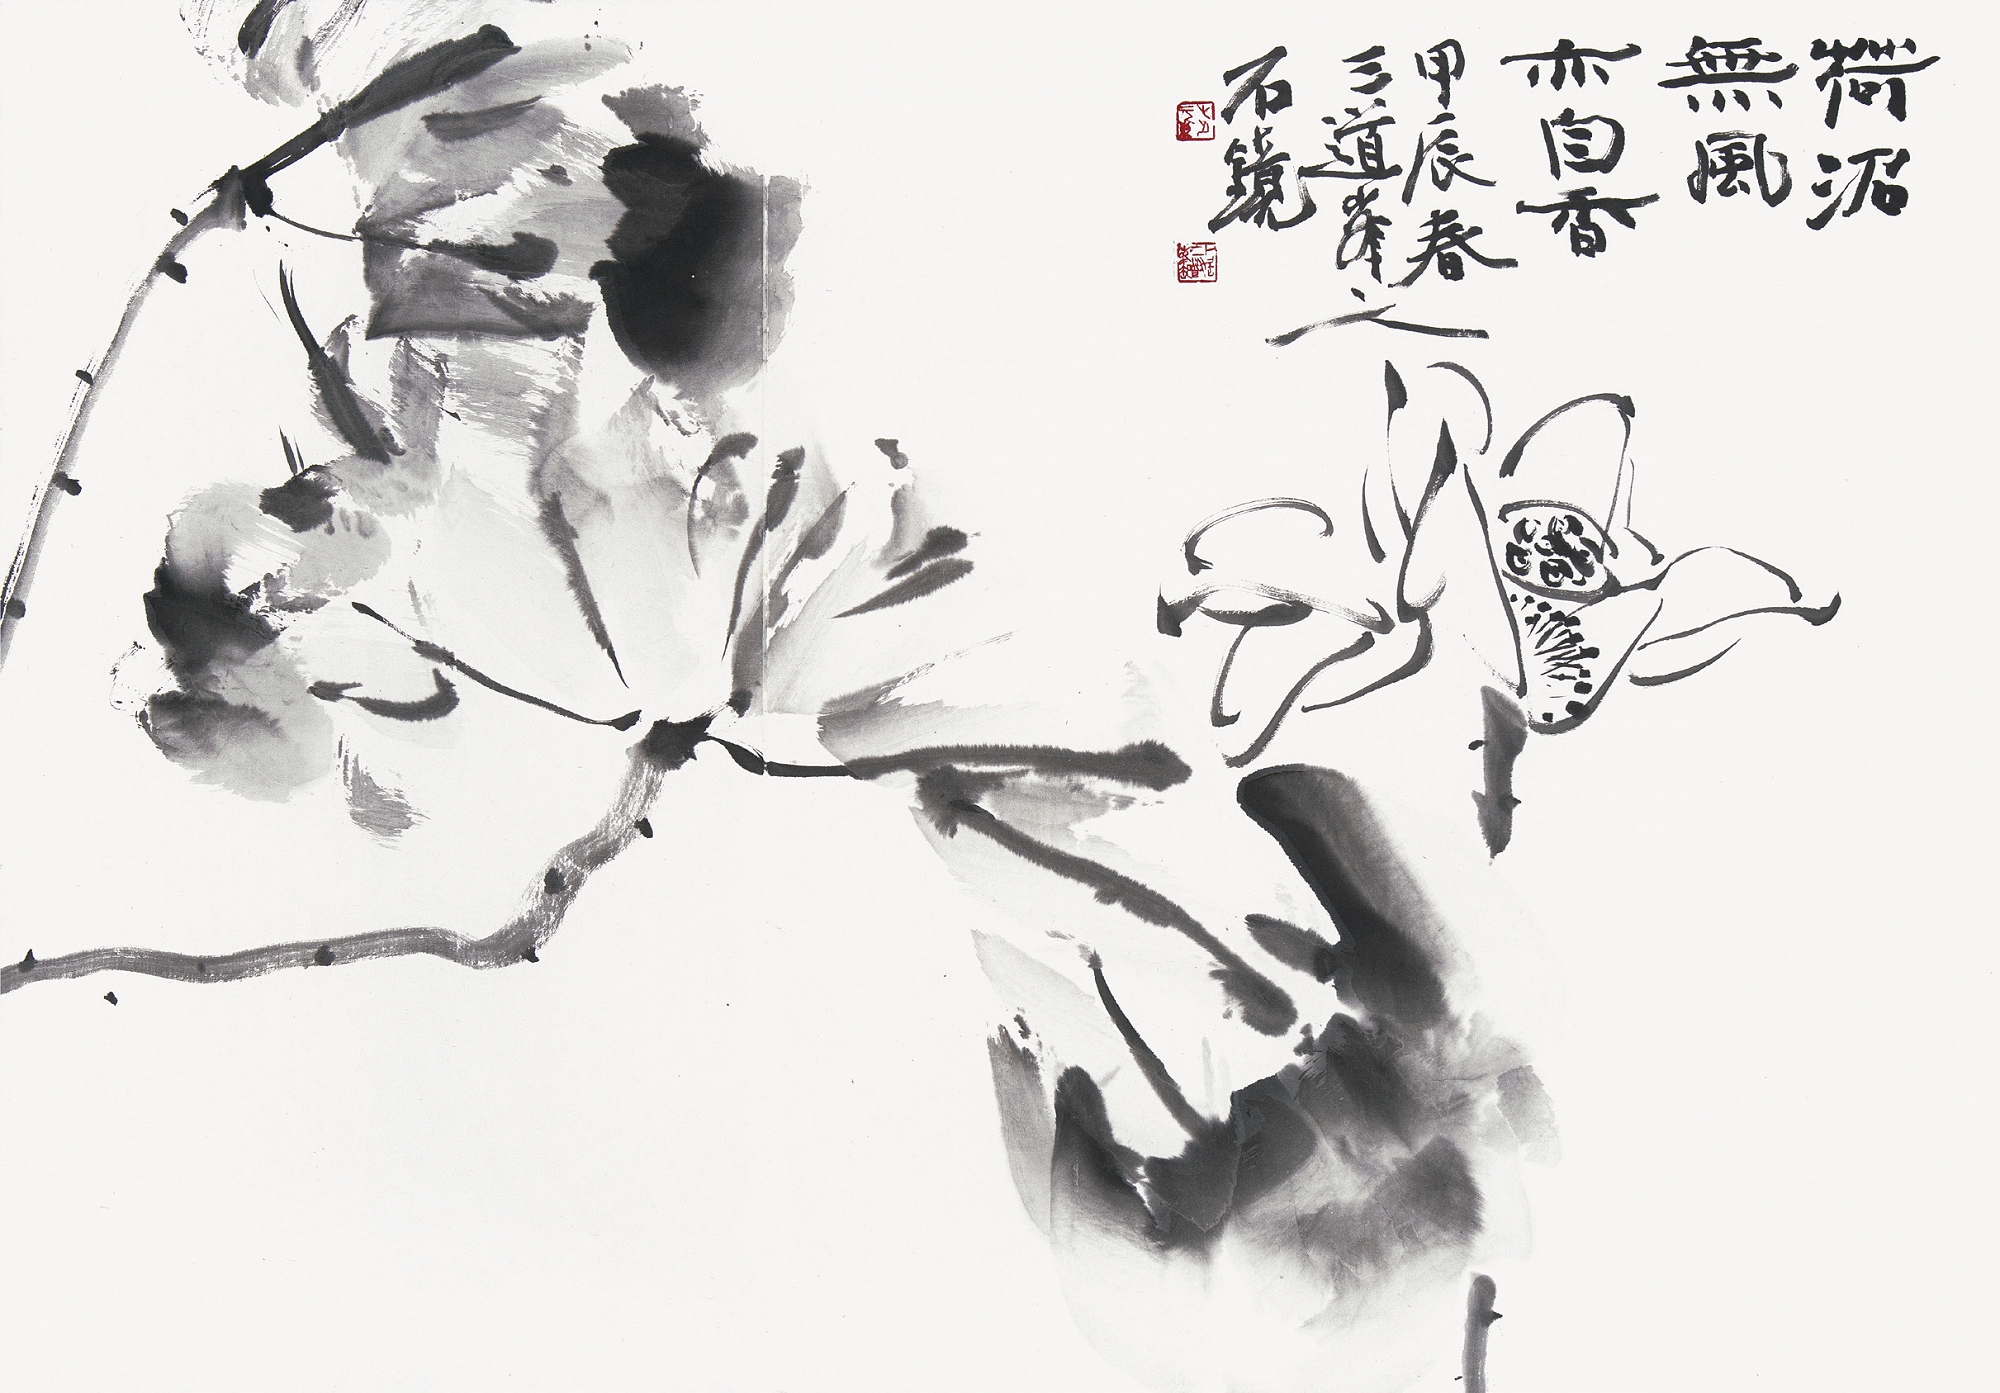 荷沼
無風
亦自香
甲辰春
三道峯之
石鏡